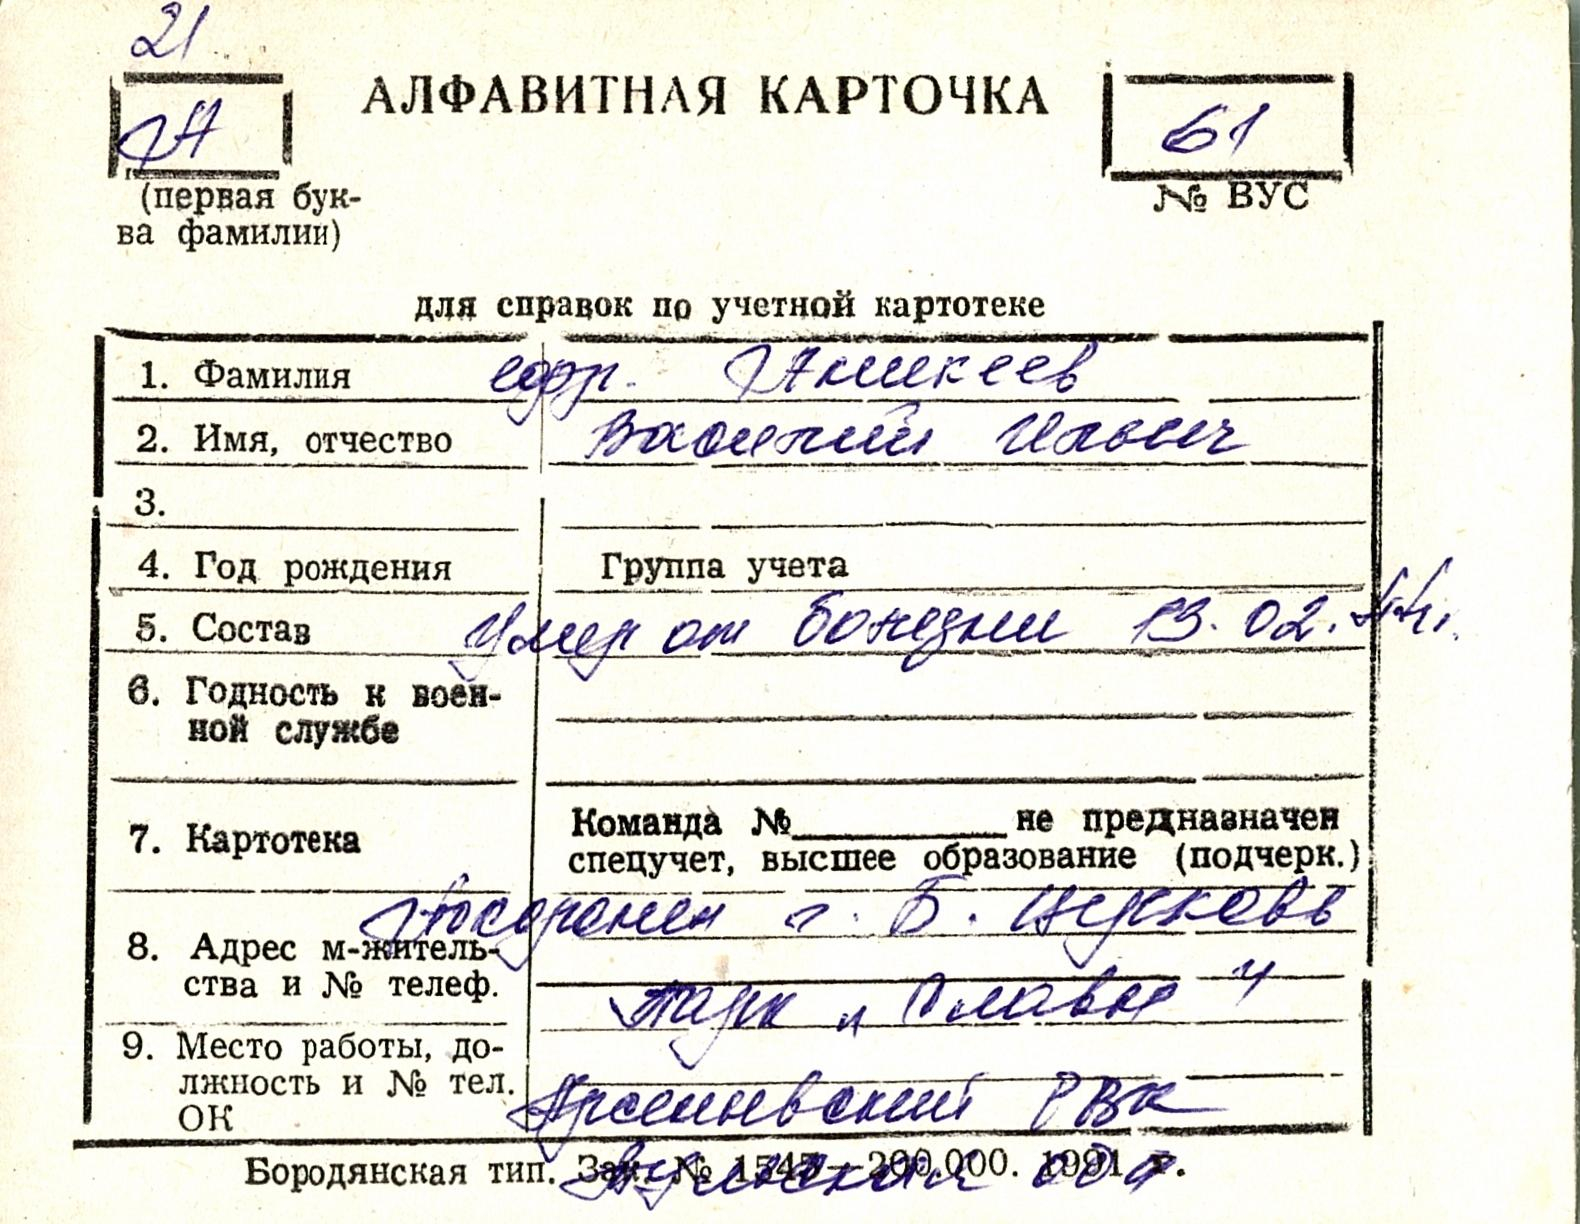 21
А
АЛФАВИТНАЯ КАРТОЧКА
61
(первая бук-
ва фамилии)
№ ВУС
для справок по учетной картотеке
1. Фамилия ефр. Аникеев
2. Имя, отчество Василий Ильич
3.
4. Год рождения Группа учета
5. Состав Умер от болезни 13.02.44г.
6. Годность к воен-
ной службе
7. Картотека
Команда № не предназначен
спецучет, высшее образование (подчерк.)
Похоронен г. Б. Церковь
8. Адрес м-житель-
ства и № телеф.
парк "Славы"
9. Место работы, до-
лжность и № тел.
ОК
Арсеньевский РВК
Тульская обл
Бородянская тип. Зак. № 1547—200.000. 1991 г.